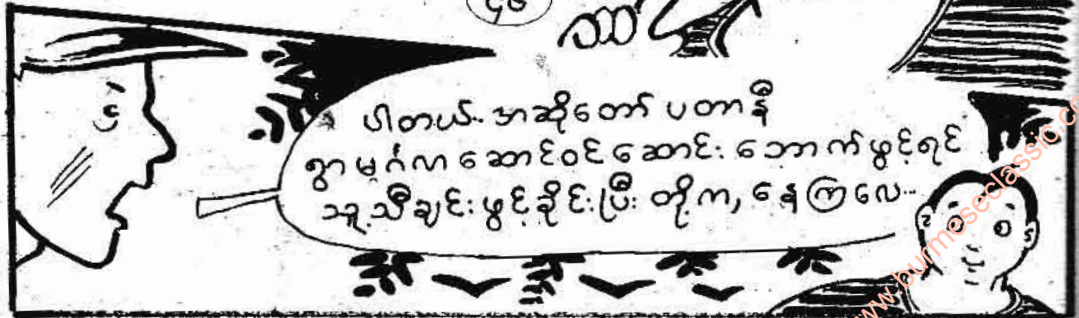 ပါတယ်.. အဆိုတော် ပတာနီ
ရွာမင်္ဂလာဆောင်ဝင်ဆောင်း ဘောက်ဖွင့်ရင်
သူ့သီချင်းဖွင့်ခိုင်းပြီး တို့က, နေကြလေ...
www.burmeseclassic.co